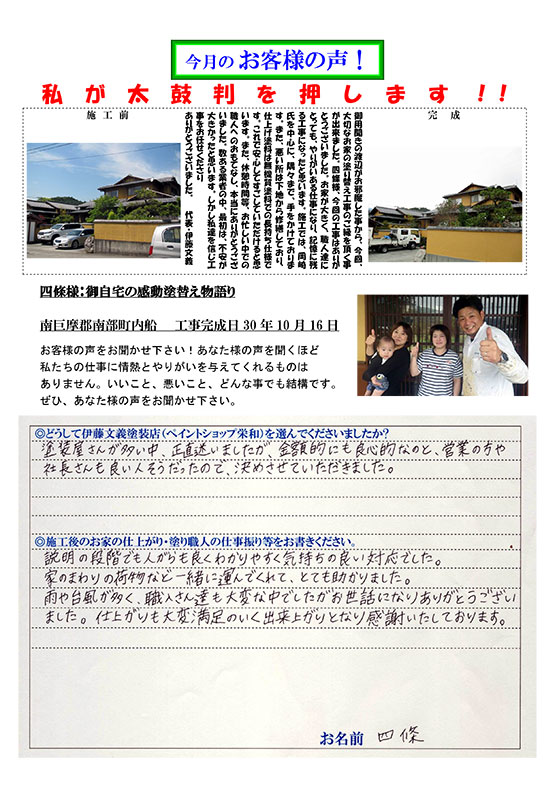 今月の お客様の声！
私が太鼓判を押します!!
施工前
完成
御用聞きの渡辺がお邪魔した事から、今回、
大切なお家の塗り替え工事のご縁を頂く事
が出来ました。四條様、今回の工事はありが
とうございました。お家が大きく、職人達に
とっても、やりがいある仕事になり、記憶に残
る工事になったと思います。施工では、岡崎
氏を中心に、隅々まで、手をかけておりま
す。また、悪い所は下地から修繕しており、
仕上げ塗料は無機質塗料での長持ち仕様で
す。これで安心してすごしていただけると思
います。また、休憩時間等、お忙しい中での
職人へのおもてなし、本当にありがとうござ
いました。数ある業者の中、最初は、不安が
大きかったと思います。しかし私達を信じ工
事をお任せくださり
ありがとうございました。 代表・伊藤文義
四條様：御自宅の感動塗替え物語り
南巨摩郡南部町内船 工事完成日30年10月16日
お客様の声をお聞かせ下さい！あなた様の声を聞くほど
私たちの仕事に情熱とやりがいを与えてくれるものは
ありません。いいこと、悪いこと、どんな事でも結構です。
ぜひ、あなた様の声をお聞かせ下さい。
◎どうして伊藤文義塗装店（ペイントショップ栄和）を選んでくださいましたか？
塗装屋さんが多い中、正直迷いましたが、金額的にも良心的なのと、営業の方や
社長さんも良い人そうだったので、決めさせていただきました。
◎施工後のお家の仕上がり・塗り職人の仕事振り等をお書きください。
説明の段階でも人がらも良くわかりやすく気持ちの良い対応でした。
家のまわりの荷物など一緒に運んでくれて、とても助かりました。
雨や台風が多く、職人さん達も大変な中でしたがお世話になりありがとうござい
ました。仕上がりも大変満足のいく出来上がりとなり感謝いたしております。
お名前 四條